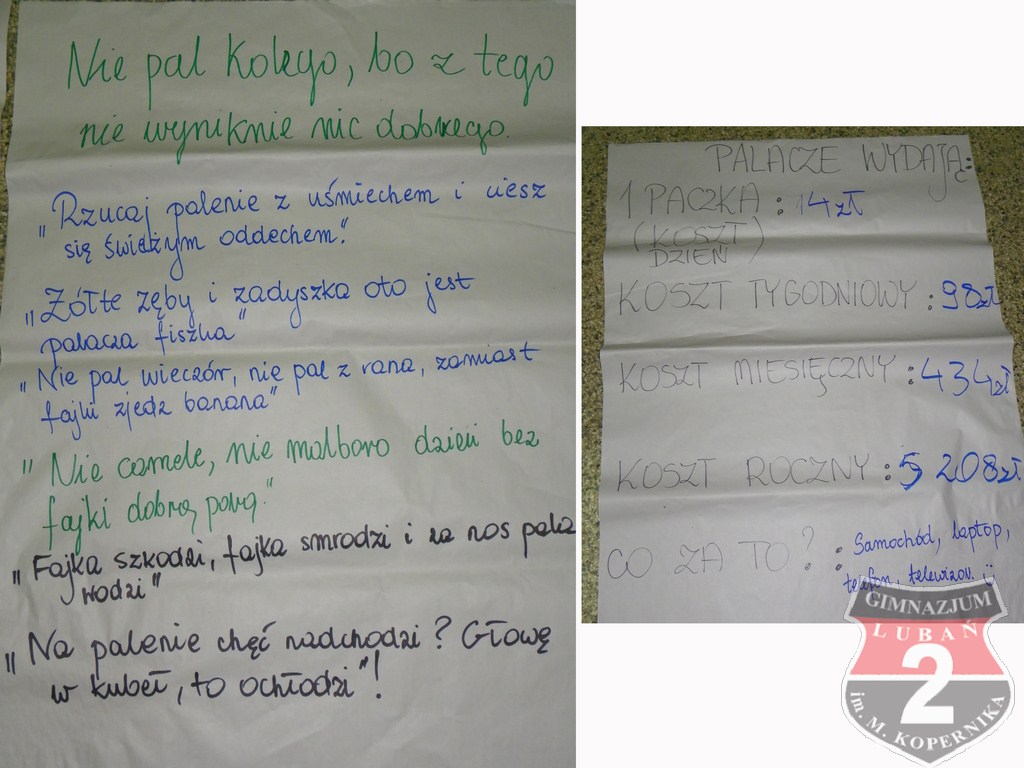 Nie pal Kolego, bo z tego
nie wyniknie nic dobrego.
„Rzucaj palenie z uśmiechem i ciesz
się świeżym oddechem."
„Żółte zęby i zadyszka oto jest
palacza fiszka"
„Nie pal wieczór, nie pal z rana, zamiast
fajki zjedz banana"
"Nie camele, nie malboro dzień bez
fajki dobrą porą."
„Fajka szkodzi, fajka smrodzi i za nos pala
wodzi"
„Na palenie chęć nadchodzi? Głowę
w kubeł, to ochłodzi"!
PALACZE WYDAJĄ:
1 PACZKA : 14 zł
(KOSZT)
DZIEŃ
KOSZT TYGODNIOWY : 98zł
KOSZT MIESIĘCZNY : 434zł
KOSZT ROCZNY : 5 208zł
CO ZA TO? : Samochód, laptop,
telefon, telewizor. :)
GIMNAZJUM
LUBAŃ
2
im. M. KOPERNIKA